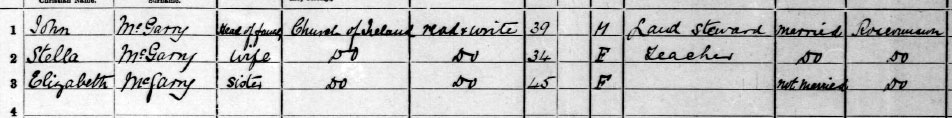 Christian Name. Surname.
1 John McGarry Head of family Church of Ireland read & write 39 M Land Steward married Roscommon
2 Stella McGarry wife Do Do 34 F Teacher Do Do
3 Elizabeth McGarry sister Do Do 45 F not married Do
4